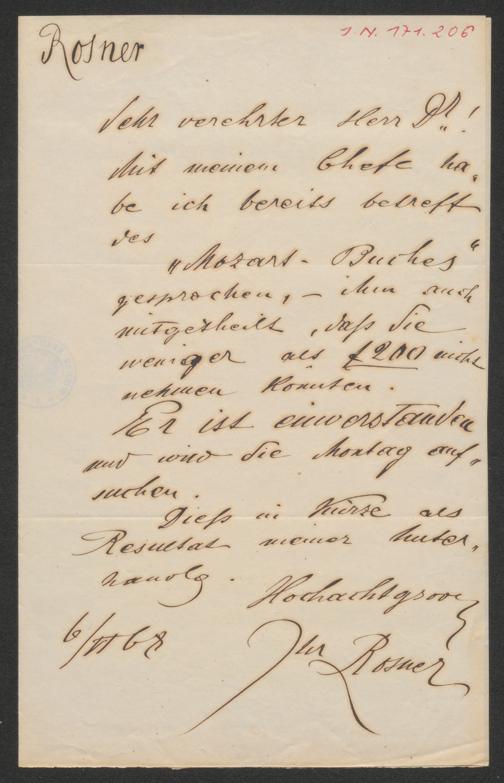 Rosner
I.N. 171.206
Sehr verehrter Herr Dr!
Mit meinem Chefe ha-
be ich bereits betreff
des
„Mozart-Buches"
gesprochen, – ihm auch
mitgetheilt, daß Sie
weniger als £200 nicht
nehmen könnten.
Er ist einverstanden
und wird Sie Montag auf-
suchen.
Dieß in Kürze als
Resultat meiner Unter-
handlg.
Hochachtgsvoll
Ihr Rosner